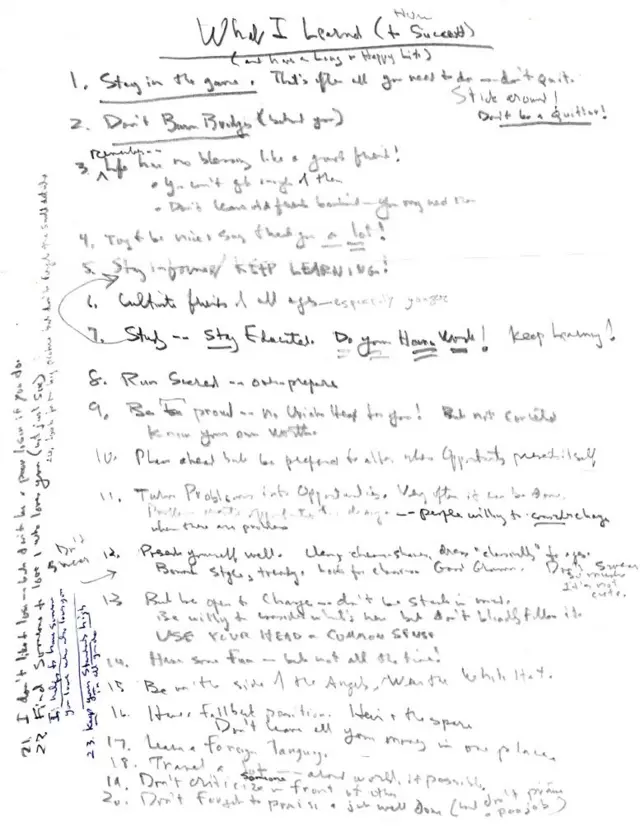 What I Learned (to Succeed)
(and have a Long & Happy Life)
1. Stay in the game. That's often all you need to do — don't quit.
Stick around!
Don't be a Quitter!
2. Don't Burn Bridges (behind you)
Remember --
3. Life has no blessing like a good friend!
• You can't get enough of them
• Don't leave old friends behind — you may need them
4. Try to be nice & say thank you a lot!
5. Stay informed / KEEP LEARNING!
6. Cultivate friends of all ages — especially younger
7. Study -- Stay Educated. Do your Home Work! Keep Learning!
8. Run Scared -- over prepare
9. Be proud -- no Uriah Heep for you! But not conceited
Know your own worth.
10. Plan ahead but be prepared to alter when Opportunity presents itself
11. Turn Problems into Opportunities. Very often it can be done.
Problems create -- people willing to consider change
when there are problems
12. Present yourself well. clean, shaven, dress "classically" to
styles, trendy. Good Grammar. Don't Swear
so much
It's not
cute.
13 But be open to Change — don't be stuck in mud.
Be willing to consider what's new but don't blindly follow it.
USE YOUR HEAD & COMMON SENSE
14. Have some Fun — but not all the time!
15 Be on the side of the Angels. Wear the White Hat.
16. Have a fallback position. Have the spare
Don't leave all your money in one place.
17. Learn a Foreign language.
18. Travel a lot -- around world, if possible.
19. Don't criticize someone in front of others
20. Don't forget to praise a job well done (but don't praise
a poor job)
21. I don't like to lose — but don't be a poor loser if you do.
22. Find Someone to love & who loves you (not just sex)
It helps to have someone
you love
23. Keep your Standards high
in all you do
24. Look for the big picture but don't forget the small details